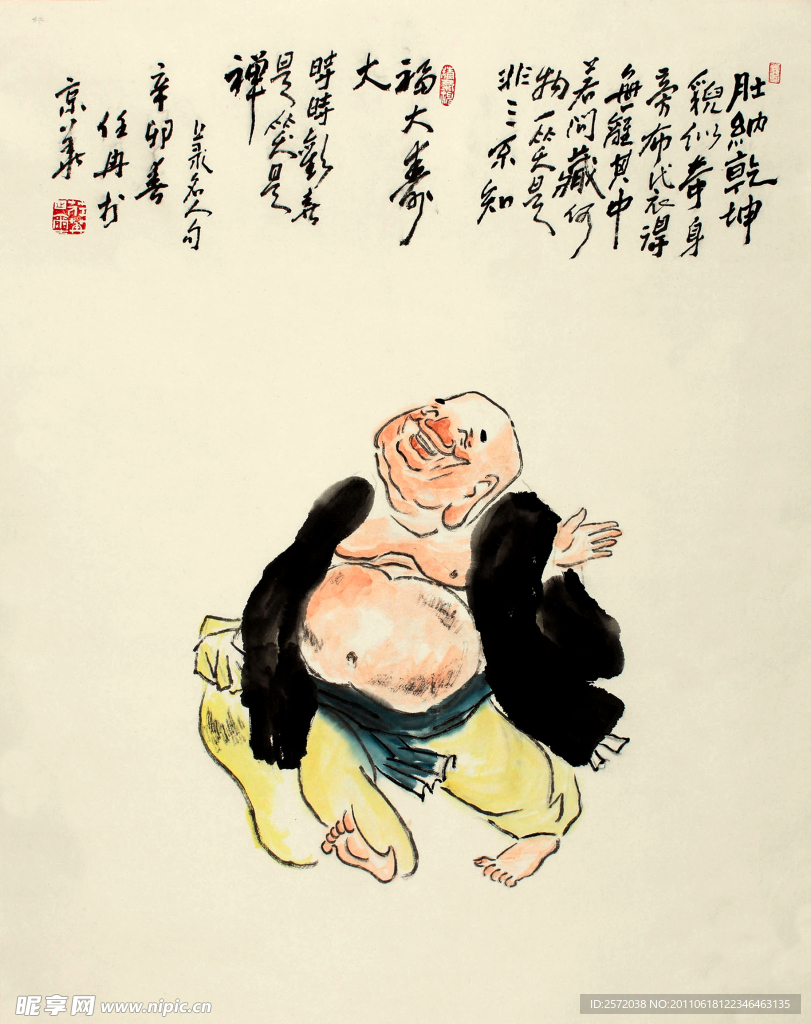 肚納乾坤
貌似奇身
旁布代衣得
無離其中
若问藏何
物一笑是
非三不知
福大壽
大
時時歡喜
是笑是
禅
上录名人句
辛卯春
任冉於
京華
昵享网 www.nipic.cn
ID:2572038 NO:20110618122346463135